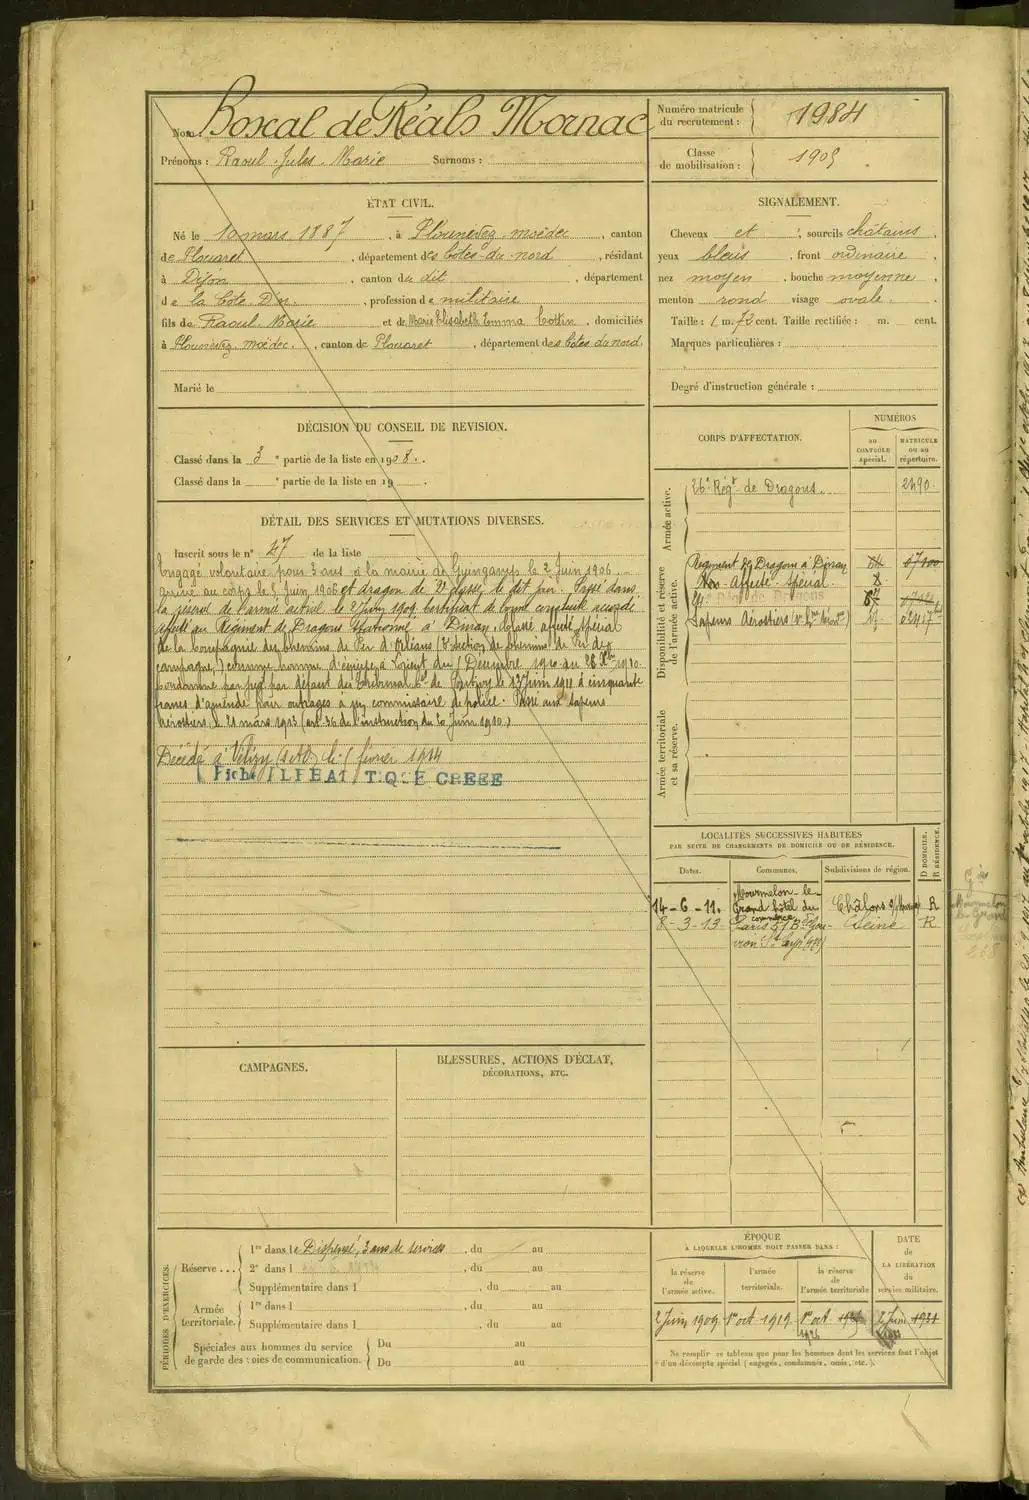 Nom : Boscal de Réals Mornac
Prénoms : Raoul Jules Marie Surnoms :
Numéro matricule
du recrutement : 1984
Classe
de mobilisation : 1905
ÉTAT CIVIL.
Né le 10 mars 1887, à Plounevez moëdec, canton
de Plouaret, département des Côtes-du-nord, résidant
à Dijon, canton du dit, département
de la Côte D'or, profession de militaire
fils de Raoul Marie et de Marie Elisabeth Emma Cottin, domiciliés
à Plounevez moëdec, canton de Plouaret, département des Côtes du nord.
Marié le
SIGNALEMENT.
Cheveux et, sourcils châtains,
yeux bleus, front ordinaire,
nez moyen, bouche moyenne,
menton rond visage ovale.
Taille : 1 m. 72 cent. Taille rectifiée : m. cent.
Marques particulières :
Degré d'instruction générale :
DÉCISION DU CONSEIL DE REVISION.
Classé dans la 3e partie de la liste en 1908.
Classé dans la e partie de la liste en 19
DÉTAIL DES SERVICES ET MUTATIONS DIVERSES.
Inscrit sous le n° 47 de la liste
Engagé volontaire pour 3 ans à la mairie de Guingamp le 2 Juin 1906
arrivé au corps le 5 Juin 1906 et dragon de 2e classe le dit jour. Passé dans
la réserve de l'armée active le 2 Juin 1909 certificat de bonne conduite accordé
affecté au Régiment de Dragons stationné à Dinan, classé affecté spécial
de la Compagnie des chemins de Fer d'Orléans (section de chemins de Fer de
campagne,) comme homme d'équipe à Lorient du 1 Décembre 1910 au 26 Xbre 1910.
Condamné par jugt par défaut du Tribunal de Pontivy le 27 Juin 1911 à cinquante
francs d'amende pour outrages à un commissaire de police. Passé aux sapeurs
aérostiers le 21 mars 1913 (art 36 de l'instruction du 20 Juin 1910.)
Décédé à Vélizy (S et O) le février 1914
CORPS D'AFFECTATION.
NUMÉROS
AU CONTRÔLE spécial.
MATRICULE OU AU répertoire.
Armée active.
26e Régt de Dragons. 2490
Disponibilité et réserve
de l'armée active.
Régiment de Dragons à Dinan
Non-Affecté-Spécial
Dragons
Sapeurs Aérostiers
Armée territoriale
et sa réserve.
LOCALITÉS SUCCESSIVES HABITÉES
PAR SUITE DE CHANGEMENTS DE DOMICILE OU DE RÉSIDENCE.
Dates. Communes. Subdivisions de région. D DOMICILE. R RÉSIDENCE.
14-6-11. Mourmelon-le-Grand hôtel du commerce Châlons s/Marne R
8-3-13 Paris Seine R
CAMPAGNES.
BLESSURES, ACTIONS D'ÉCLAT,
DÉCORATIONS, ETC.
PÉRIODES D'EXERCICES.
Réserve ...
1re dans le Dispensé, 3 ans de services, du au
2e dans l, du au
Supplémentaire dans l, du au
Armée
territoriale.
1re dans l, du au
Supplémentaire dans l, du au
Spéciales aux hommes du service
de garde des voies de communication.
Du au
Du au
ÉPOQUE
À LAQUELLE L'HOMME DOIT PASSER DANS :
la réserve de l'armée active.
l'armée territoriale.
la réserve de l'armée territoriale
DATE
de
LA LIBÉRATION
du
service militaire.
2 Juin 1909 1er oct 1919 1er oct 2 Juin 1931
1926
Ne remplir ce tableau que pour les hommes dont les services font l'objet
d'un décompte spécial (engagés, condamnés, omis, etc.).